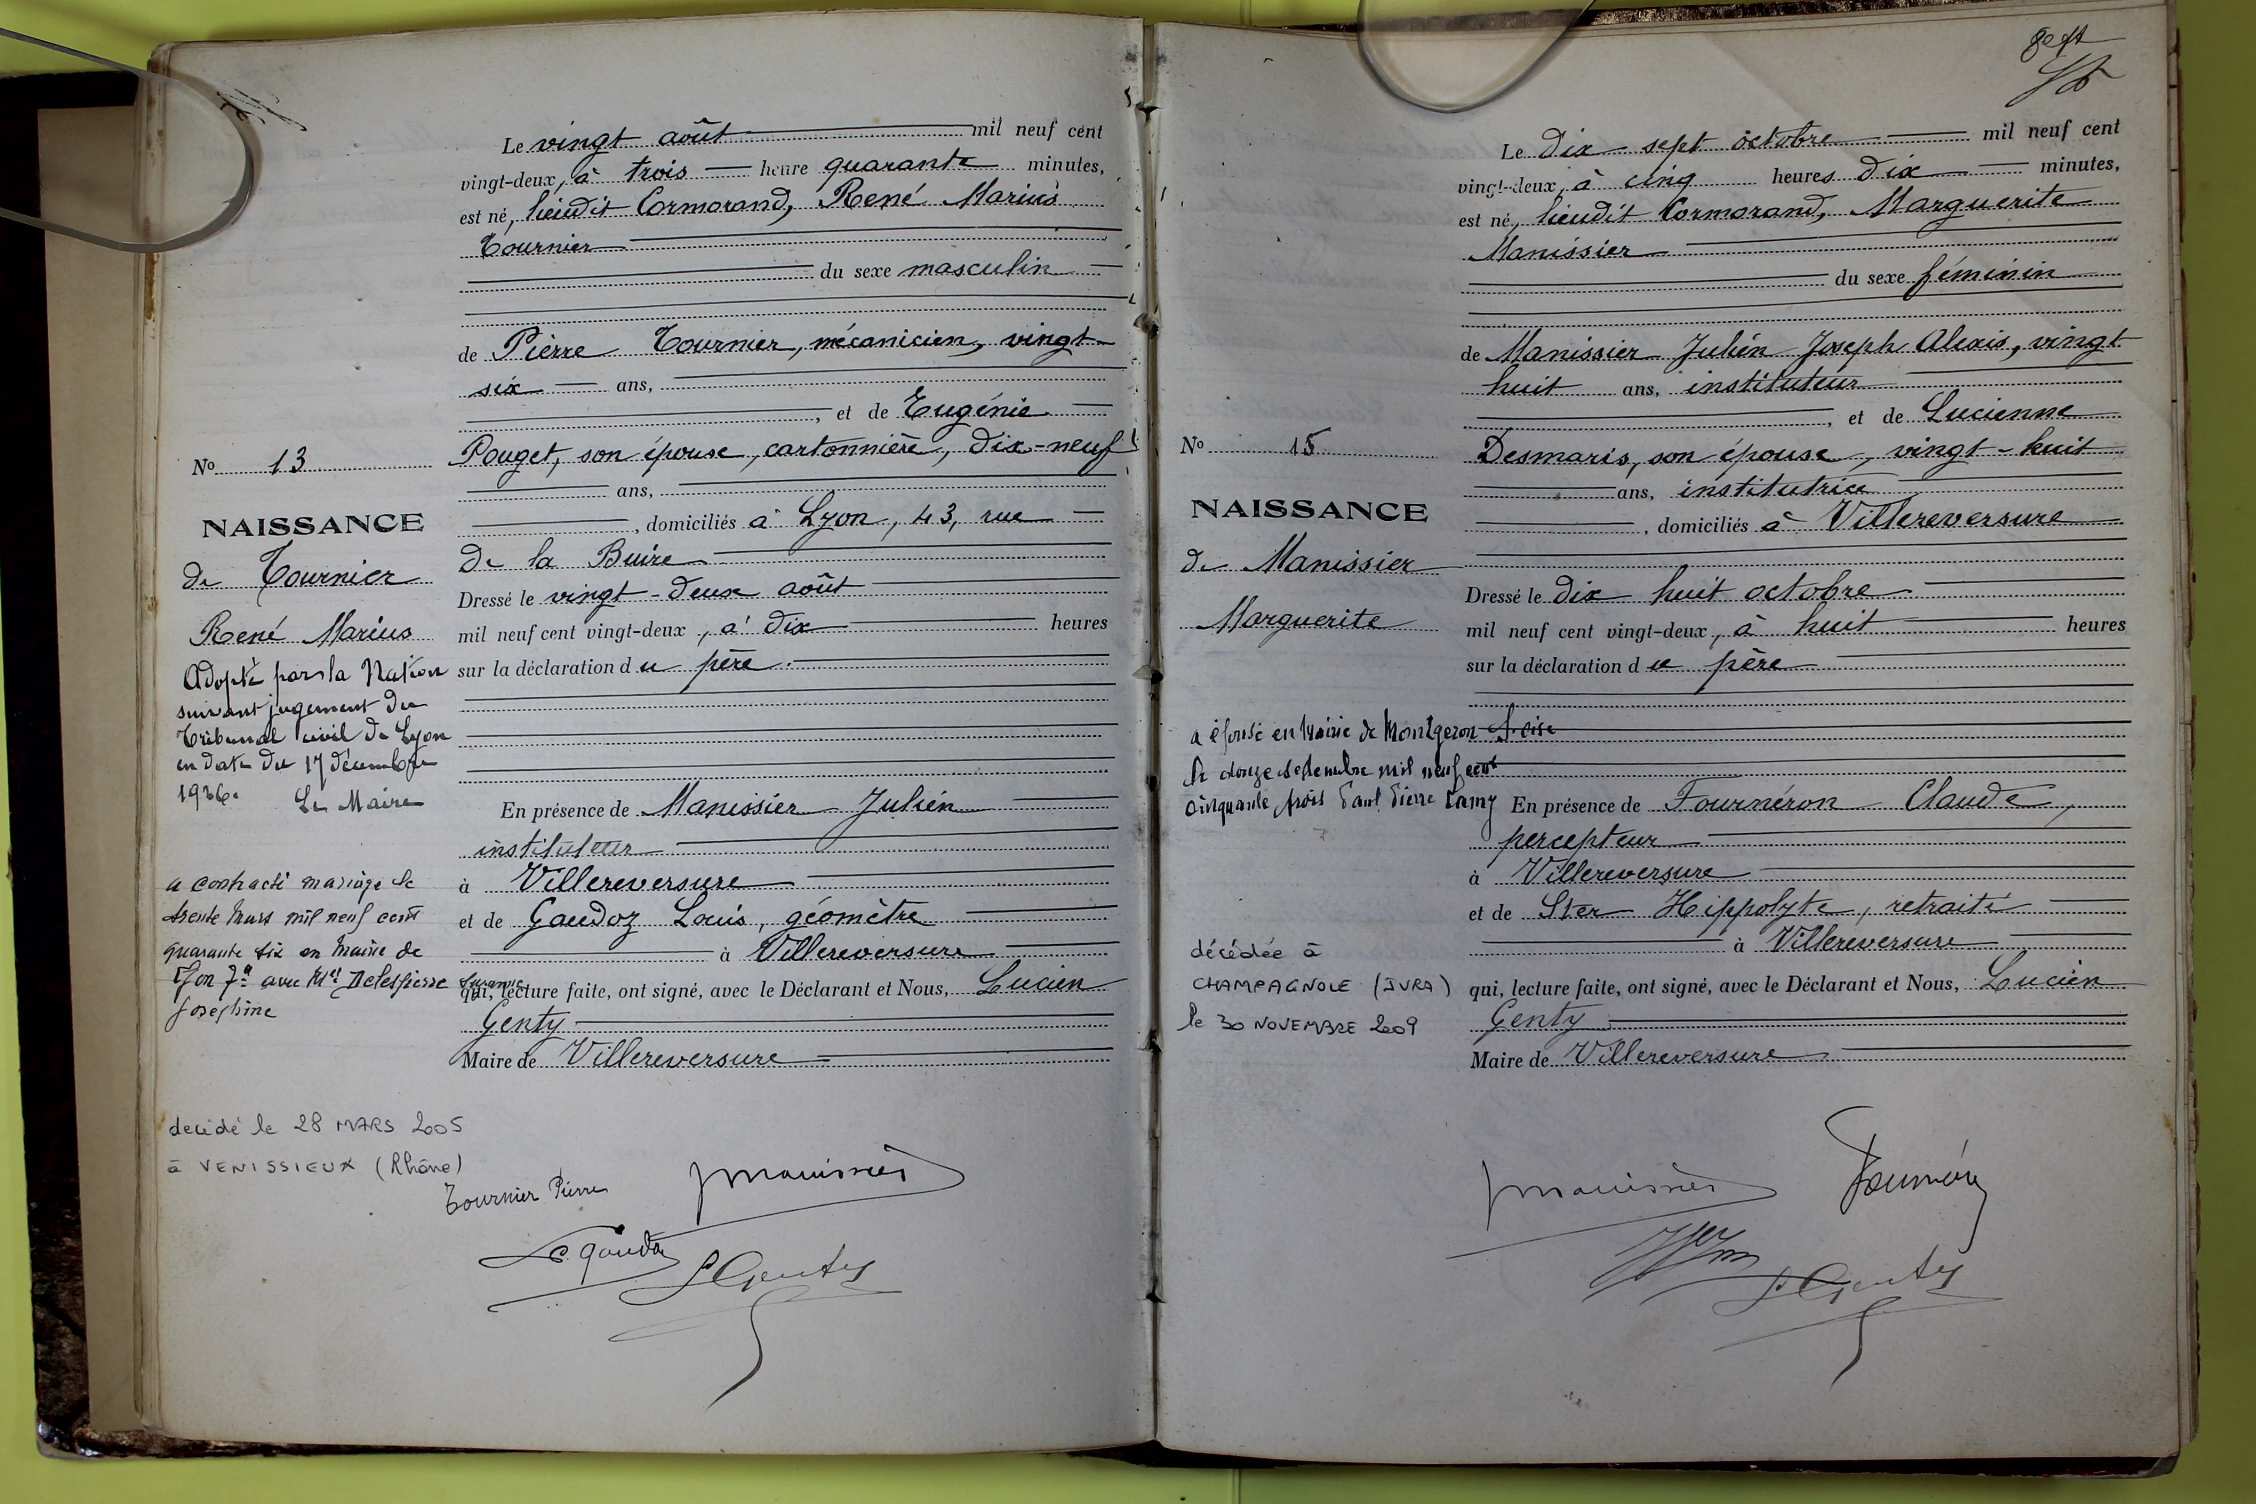 Le vingt août mil neuf cent
vingt-deux, à trois heure quarante minutes,
est né, lieudit Cormorand, René Marius
Tournier
du sexe masculin
de Pierre Tournier, mécanicien, vingt-
six ans,
, et de Eugénie
Pouget, son épouse, cartonnière, dix-neuf
ans,
, domiciliés à Lyon, 43, rue
de la Buire
Dressé le vingt-deux août
mil neuf cent vingt-deux, à dix heures
sur la déclaration du père.
En présence de Manissier Julien
instituteur
à Villereversure
et de Gaudoz Louis, géomètre
à Villereversure
qui, lecture faite, ont signé, avec le Déclarant et Nous, Lucien
Genty
Maire de Villereversure
No 13
NAISSANCE
de Tournier
René Marius
Adopté par la Nation
suivant jugement du
Tribunal civil de Lyon
en date du 17 décembre
1936.
Le Maire
a contracté mariage le
trente mars mil neuf cent
quarante six en mairie de
Lyon 7e avec Mlle Delespierre Suzanne
Joséphine
decidé le 28 MARS 2005
à VENISSIEUX (Rhône)
Tournier Pierre
JManissier
L. Gaudoz
L Genty
Sept
Le dix sept octobre mil neuf cent
vingt-deux, à cinq heures dix minutes,
est né, lieudit Cormorand, Marguerite
Manissier
du sexe féminin
de Manissier Julien Joseph Alexis, vingt
huit ans, instituteur
, et de Lucienne
Desmaris, son épouse, vingt-huit
ans, institutrice
, domiciliés à Villereversure
Dressé le dix huit octobre
mil neuf cent vingt-deux, à huit heures
sur la déclaration du père
En présence de Fournéron Claude,
percepteur
à Villereversure
et de Ster Hippolyte, retraité
à Villereversure
qui, lecture faite, ont signé, avec le Déclarant et Nous, Lucien
Genty
Maire de Villereversure
No 15
NAISSANCE
de Manissier
Marguerite
a épousé en Mairie de Montgeron S. Oise
le douze septembre mil neuf cent
cinquante trois Paul Pierre Lamy
décédée à
CHAMPAGNOLE (JURA)
le 30 NOVEMBRE 2009
JManissier
Fournéron
L Genty